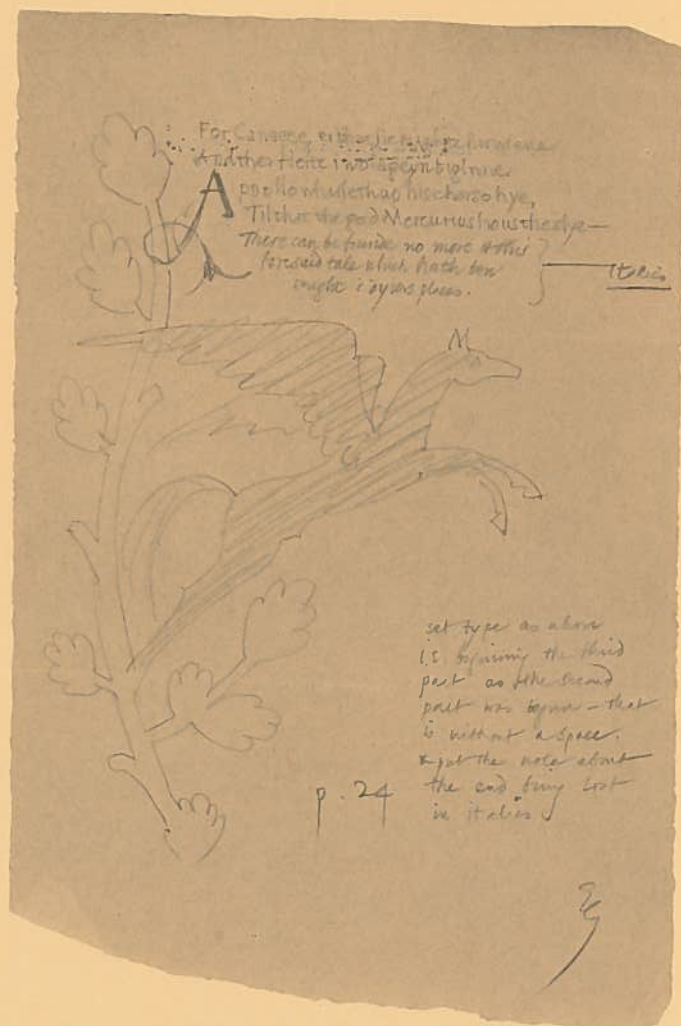 For Canacee,
And ther
Apollo his hye,
Til that the god Mercurius hous the slye —
There can be founde no more of this
foresaid tale which hath ben
sought i dyvers places.
Italics
set type as above
i.e. beginning the third
part as the second
part was begun – that
is without a space.
& put the note about
the end being lost
in italics
p. 24